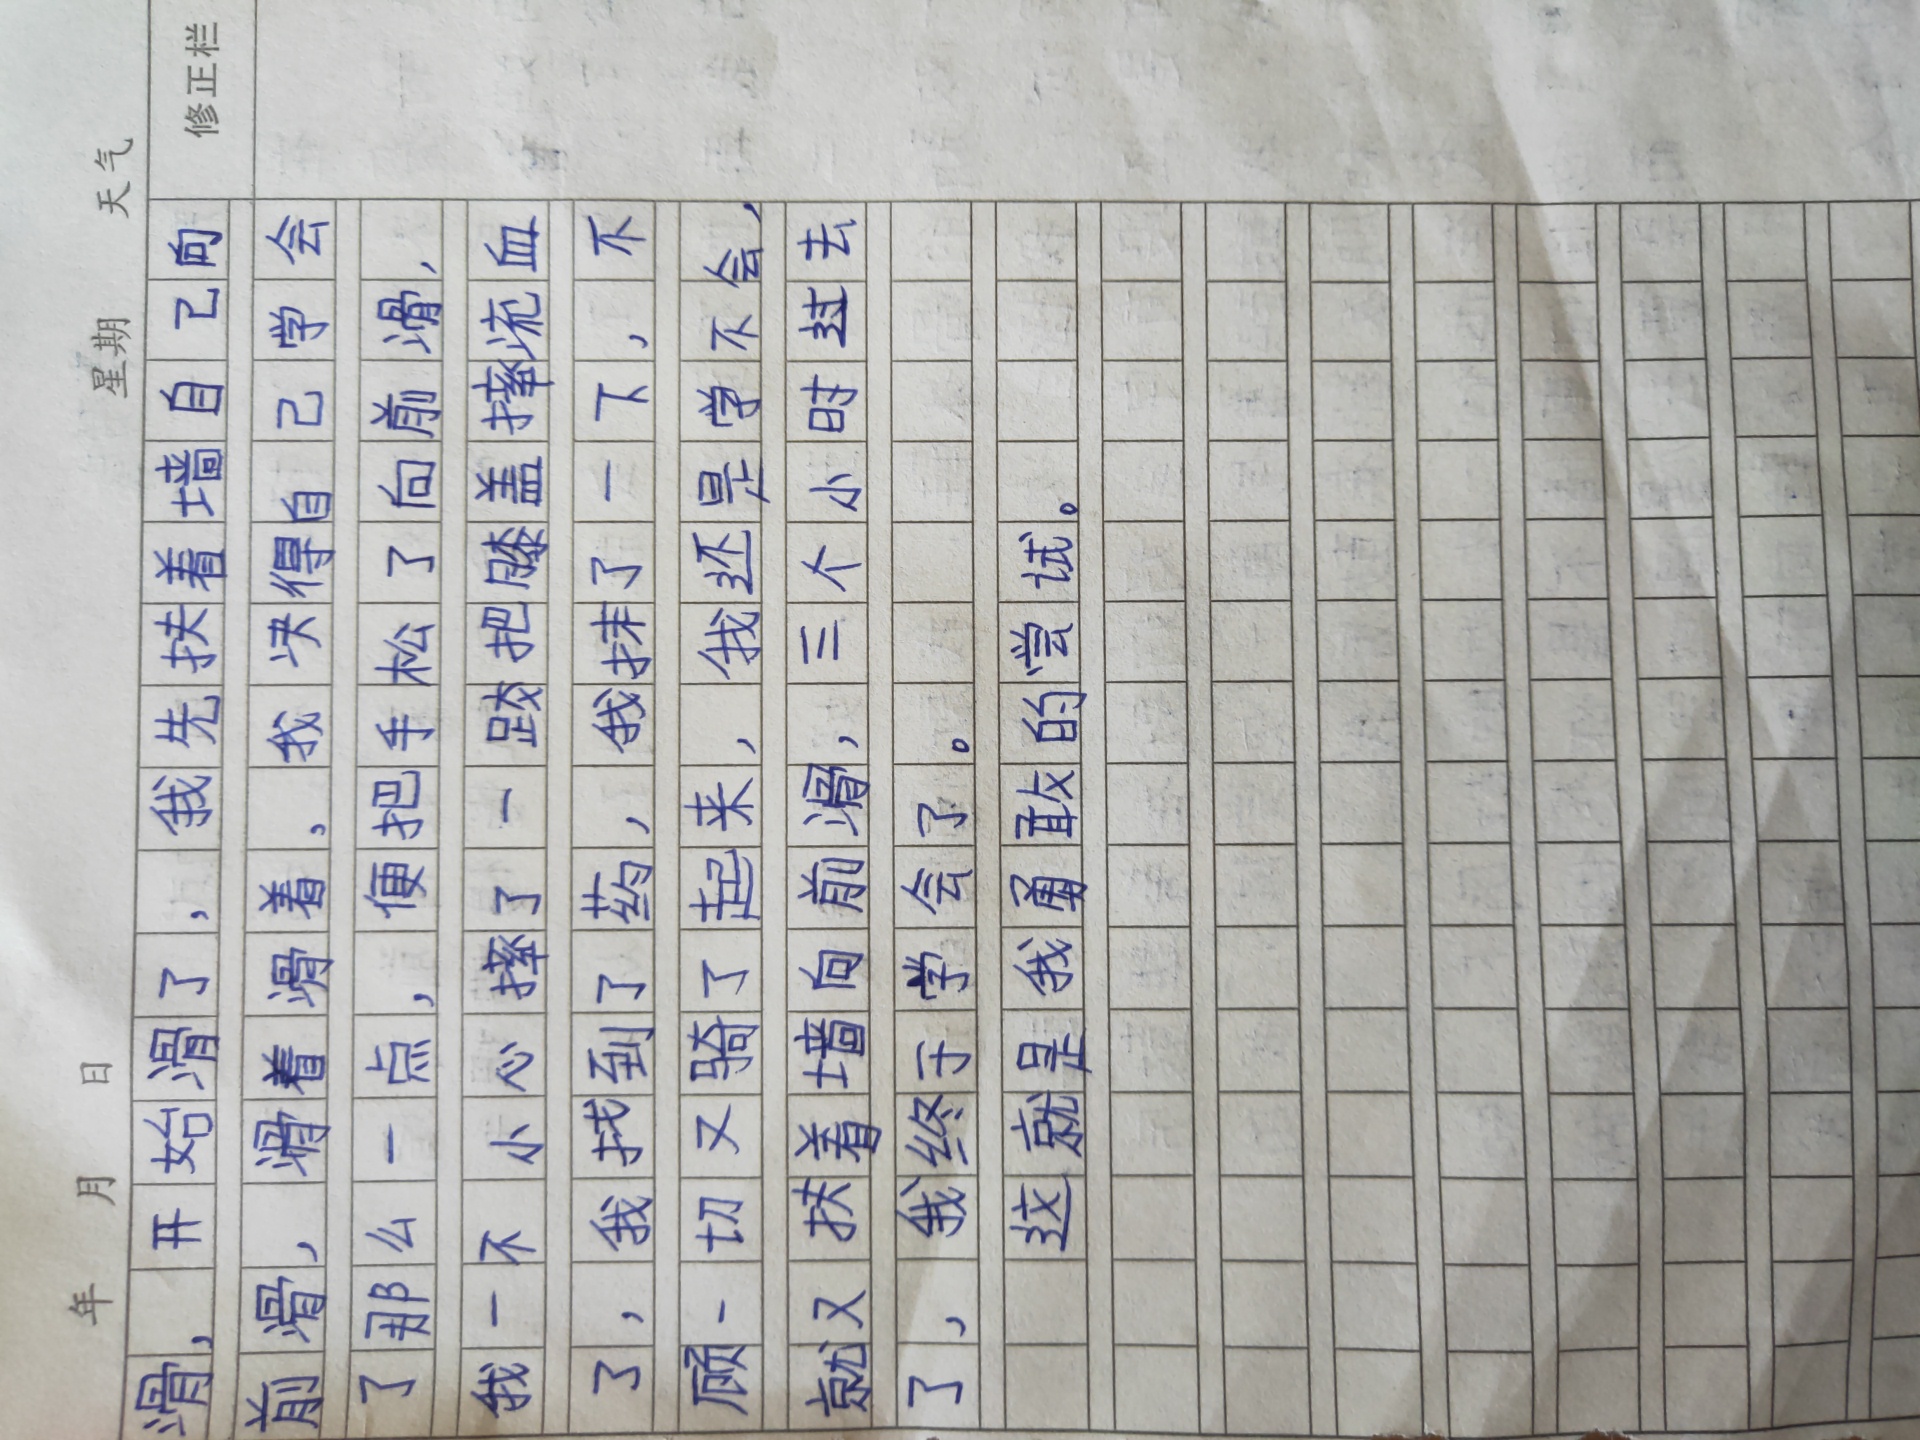 年 月 日 星期 天气
滑，开始滑了，我先扶着墙自己向
修正栏
前滑，滑着滑着，我决得自己学会
了那么一点，便把手松了向前滑，
我一不小心摔了一跤把膝盖摔流血
了，我找到了药，我抹了一下，不
顾一切又骑了起来，我还是学不会，
就又扶着墙向前滑，三个小时过去
了，我终于学会了。
这就是我勇敢的尝试。